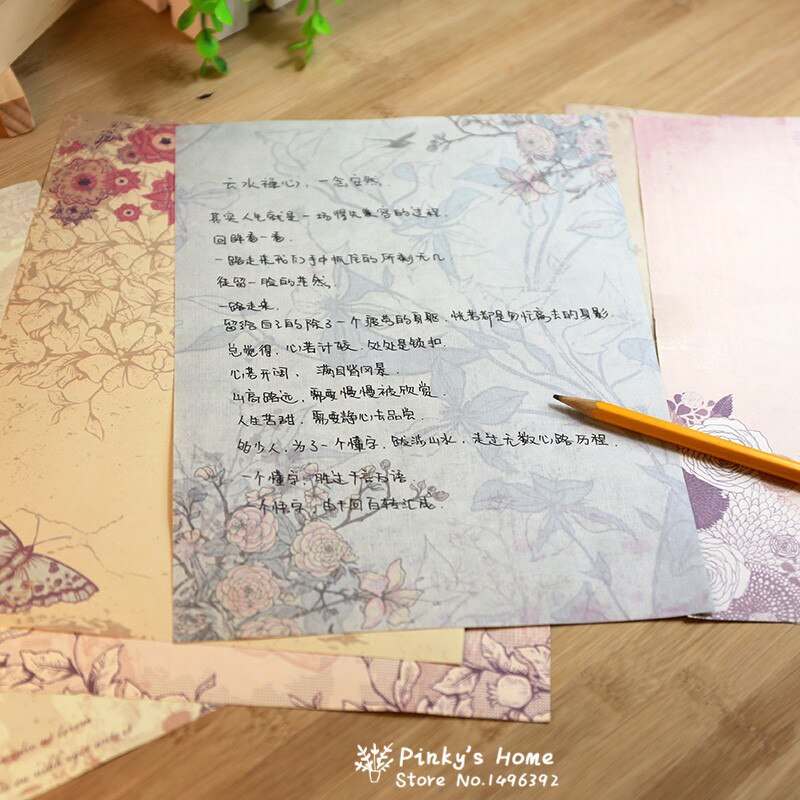 云水禅心，一念安然.
其实人生就是一场得失兼容的过程.
回眸看一看.
一路走来我们手中抓住的所剩无几
徒留一脸的茫然.
一路走来.
留给自己的除了一个疲劳的身躯，恍若都是匆忙离去的身影.
总觉得，心若计较，处处是锁扣.
心若开阔，满目皆风景.
山高路远，需要慢慢被欣赏.
人生苦甜，需要静心去品尝.
多少人，为了一个懂字，跋涉山水，走过无数心路历程.
一个懂字，胜过千言万语
一个懂字，由千回百转汇成.
Pinky's Home
Store No.1496392